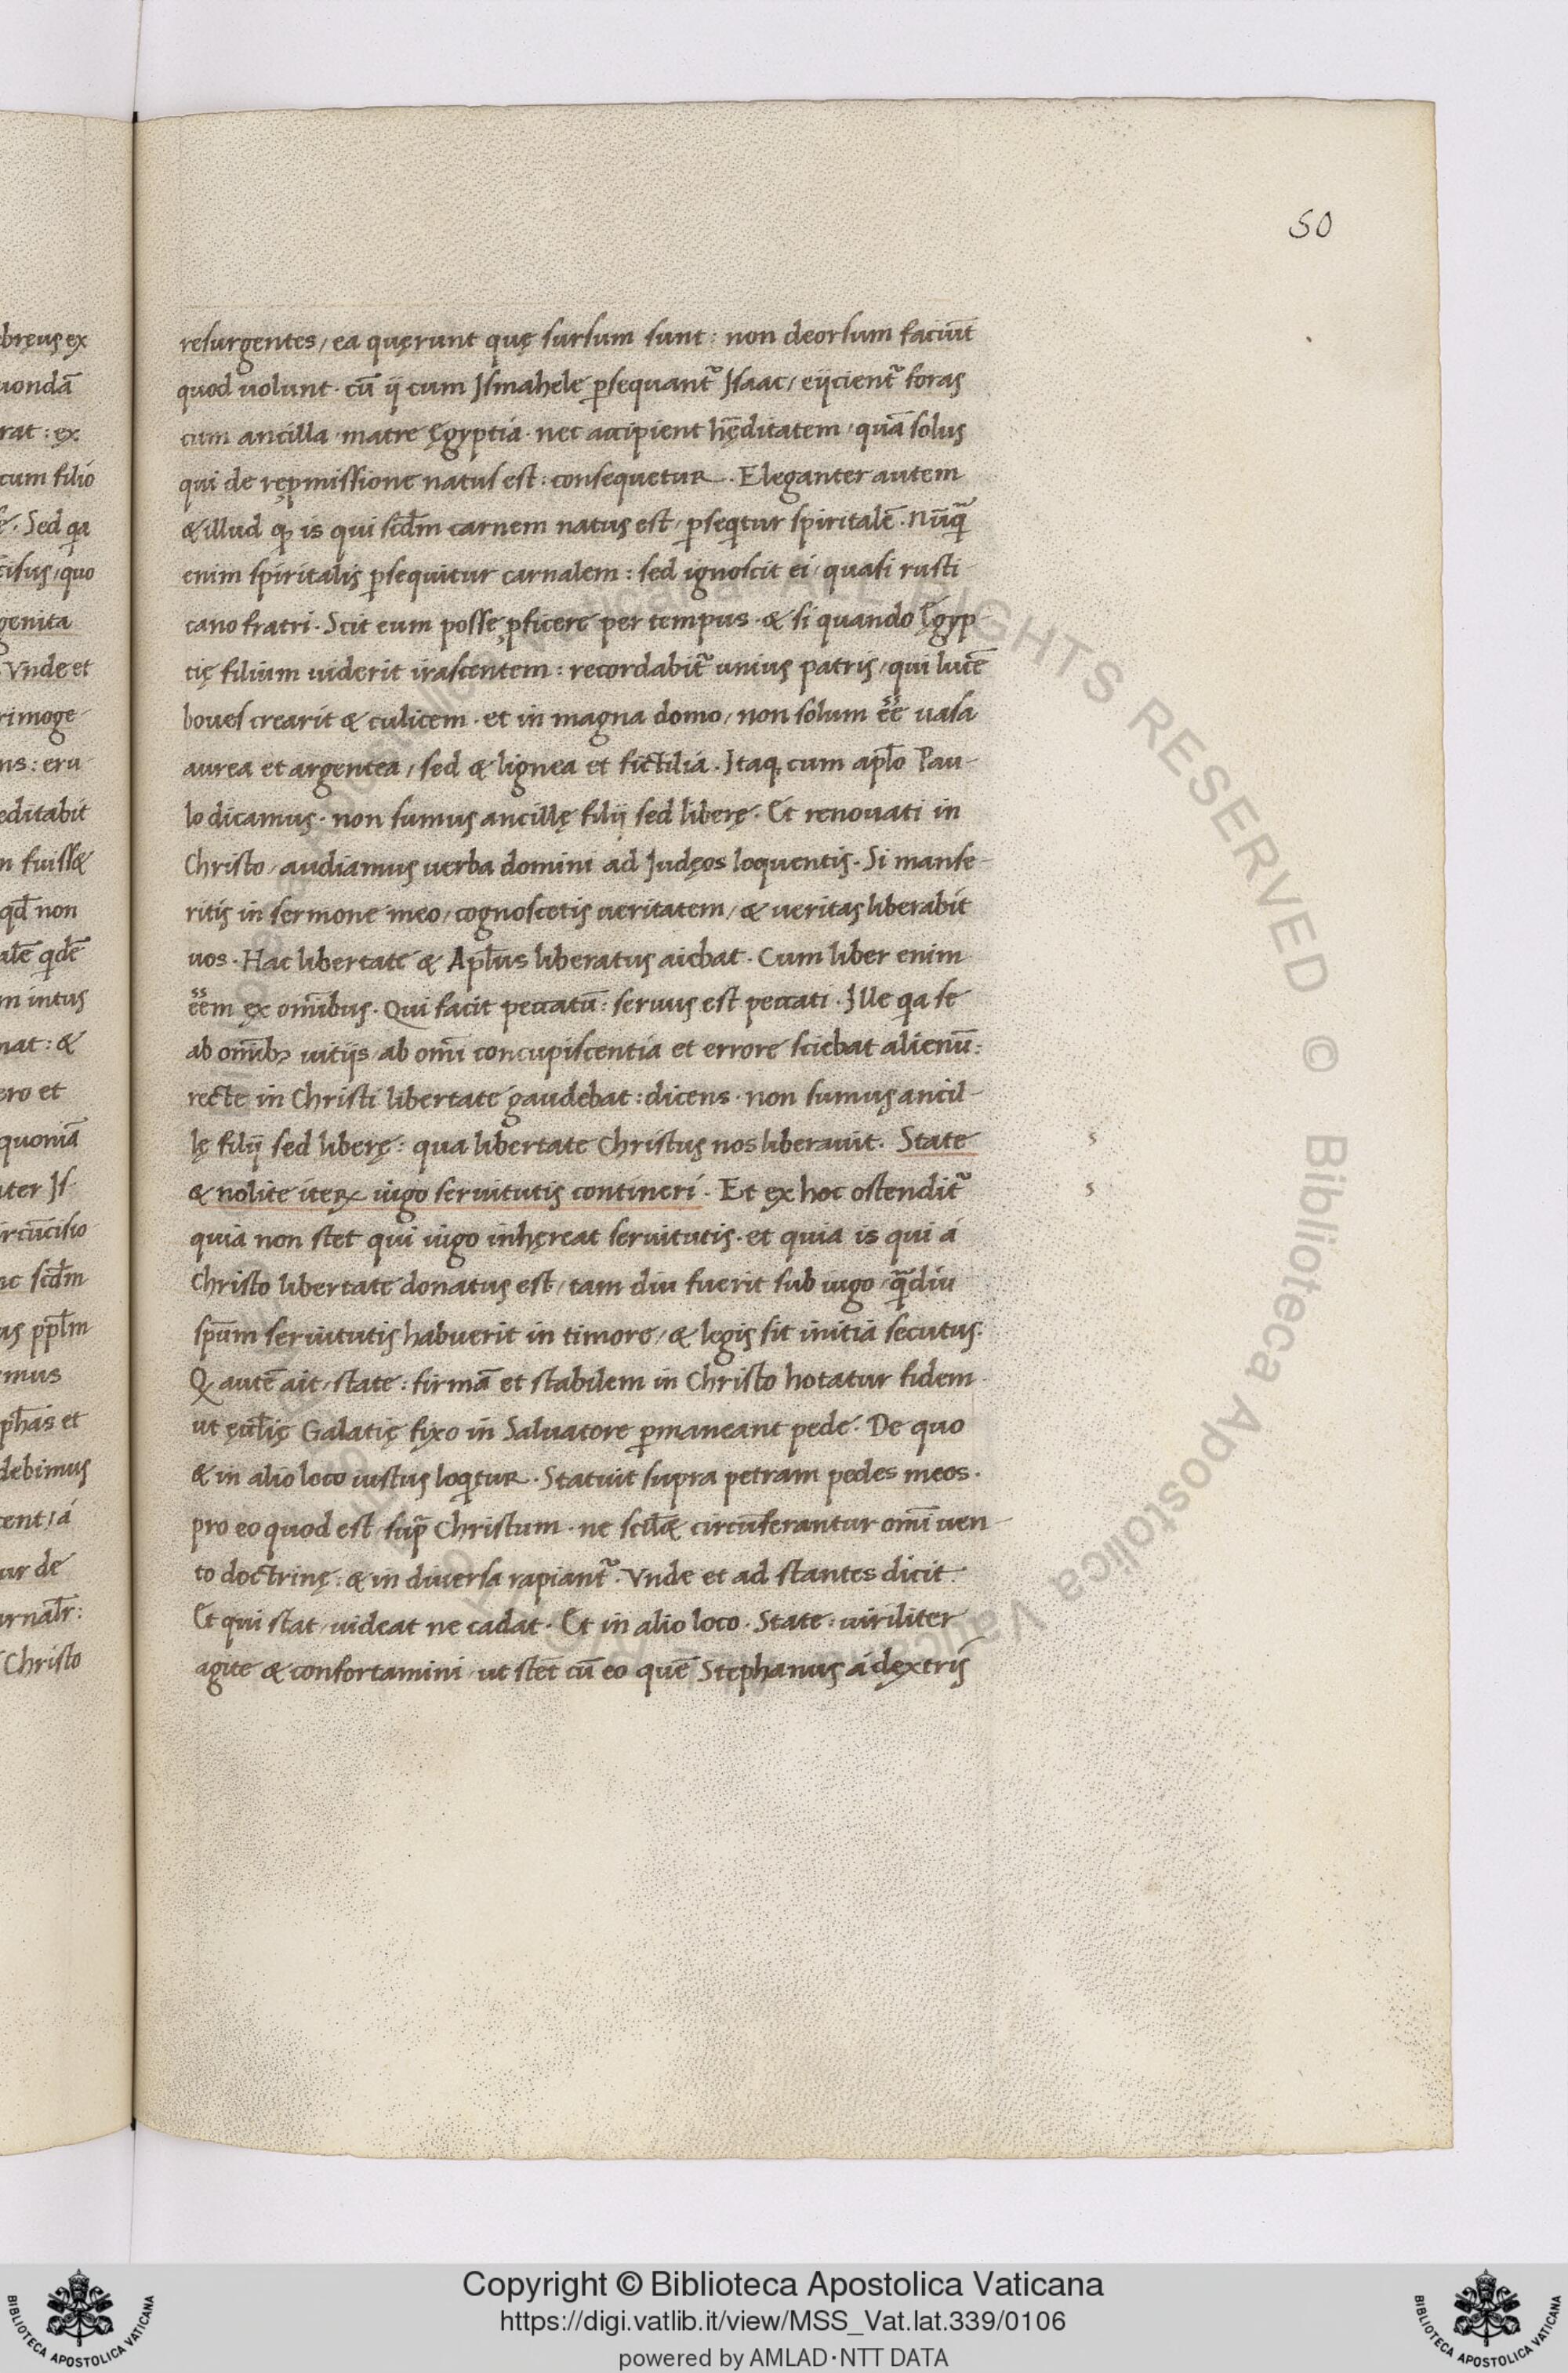 50
resurgentes, ea quęrunt quę sursum sunt: non deorsum faciūt
quod uolunt. cū ij cum Ismahele p̱sequant᷑ Isaac, eijcient᷑ foras
cum ancilla matre Ęgyptia. nec accipient hęditatem, quā solus
qui de rep̱missione natus est: consequetur. Eleganter autem
& illud qꝫ is qui scd̄m carnem natus est, p̱seqtur spiritalē. nūq̄
enim spiritalis p̱sequitur carnalem: sed ignoscit ei, quasi rusti-
cano fratri. Scit eum posse ꝓficere per tempus. & si quando Ęgyp-
tię filium uiderit irascentem: recordabit᷑ unius patris, qui lucē
boues crearit & culicem. et in magna domo, non solum ee᷑ uasa
aurea et argentea, sed & lignea et fictilia. Itaqꝫ cum apl̄o Pau-
lo dicamus. non sumus ancillę filij sed liberę. Et renouati in
Christo, audiamus uerba domini ad Iudęos loquentis. Si manse-
ritis in sermone meo, cognoscetis ueritatem, & ueritas liberabit
uos. Hac libertate & Apl̄us liberatus aiebat. Cum liber enim
eem᷑ ex om̄ibus. Qui facit peccatū: seruus est peccati. Ille qa se
ab om̄ibꝫ uitijs ab om̄i concupiscentia et errore sciebat alienū:
recte in Christi libertate gaudebat: dicens. non sumus ancil-
lę filij sed liberę: qua libertate Christus nos liberauit. State
& nolite iteꝝ iugo seruitutis contineri. Et ex hoc ostendit᷑
quia non stet qui iugo inhęreat seruitutis. et quia is qui á
Christo libertate donatus est, tam diu fuerit sub iugo, q̄diu
sp̄um seruitutis habuerit in timore, & legis sit initia secutus.
Qꝫ autē ait, state: firmā et stabilem in Christo hotatur fidem
ut ęcl̄ię Galatię fixo in Saluatore p̱maneant pede. De quo
& in alio loco iustus loqtur. Statuit supra petram pedes meos.
pro eo quod est, sup̄ Christum. ne scil& circūferantur om̄i uen-
to doctrinę: & in diuersa rapiant᷑. Vnde et ad stantes dicit.
Et qui stat, uideat ne cadat. Et in alio loco. State: uiriliter
agite & confortamini, ut stēt cū eo quē Stephanus á dextris
Copyright © Biblioteca Apostolica Vaticana
https://digi.vatlib.it/view/MSS_Vat.lat.339/0106
powered by AMLAD·NTT DATA